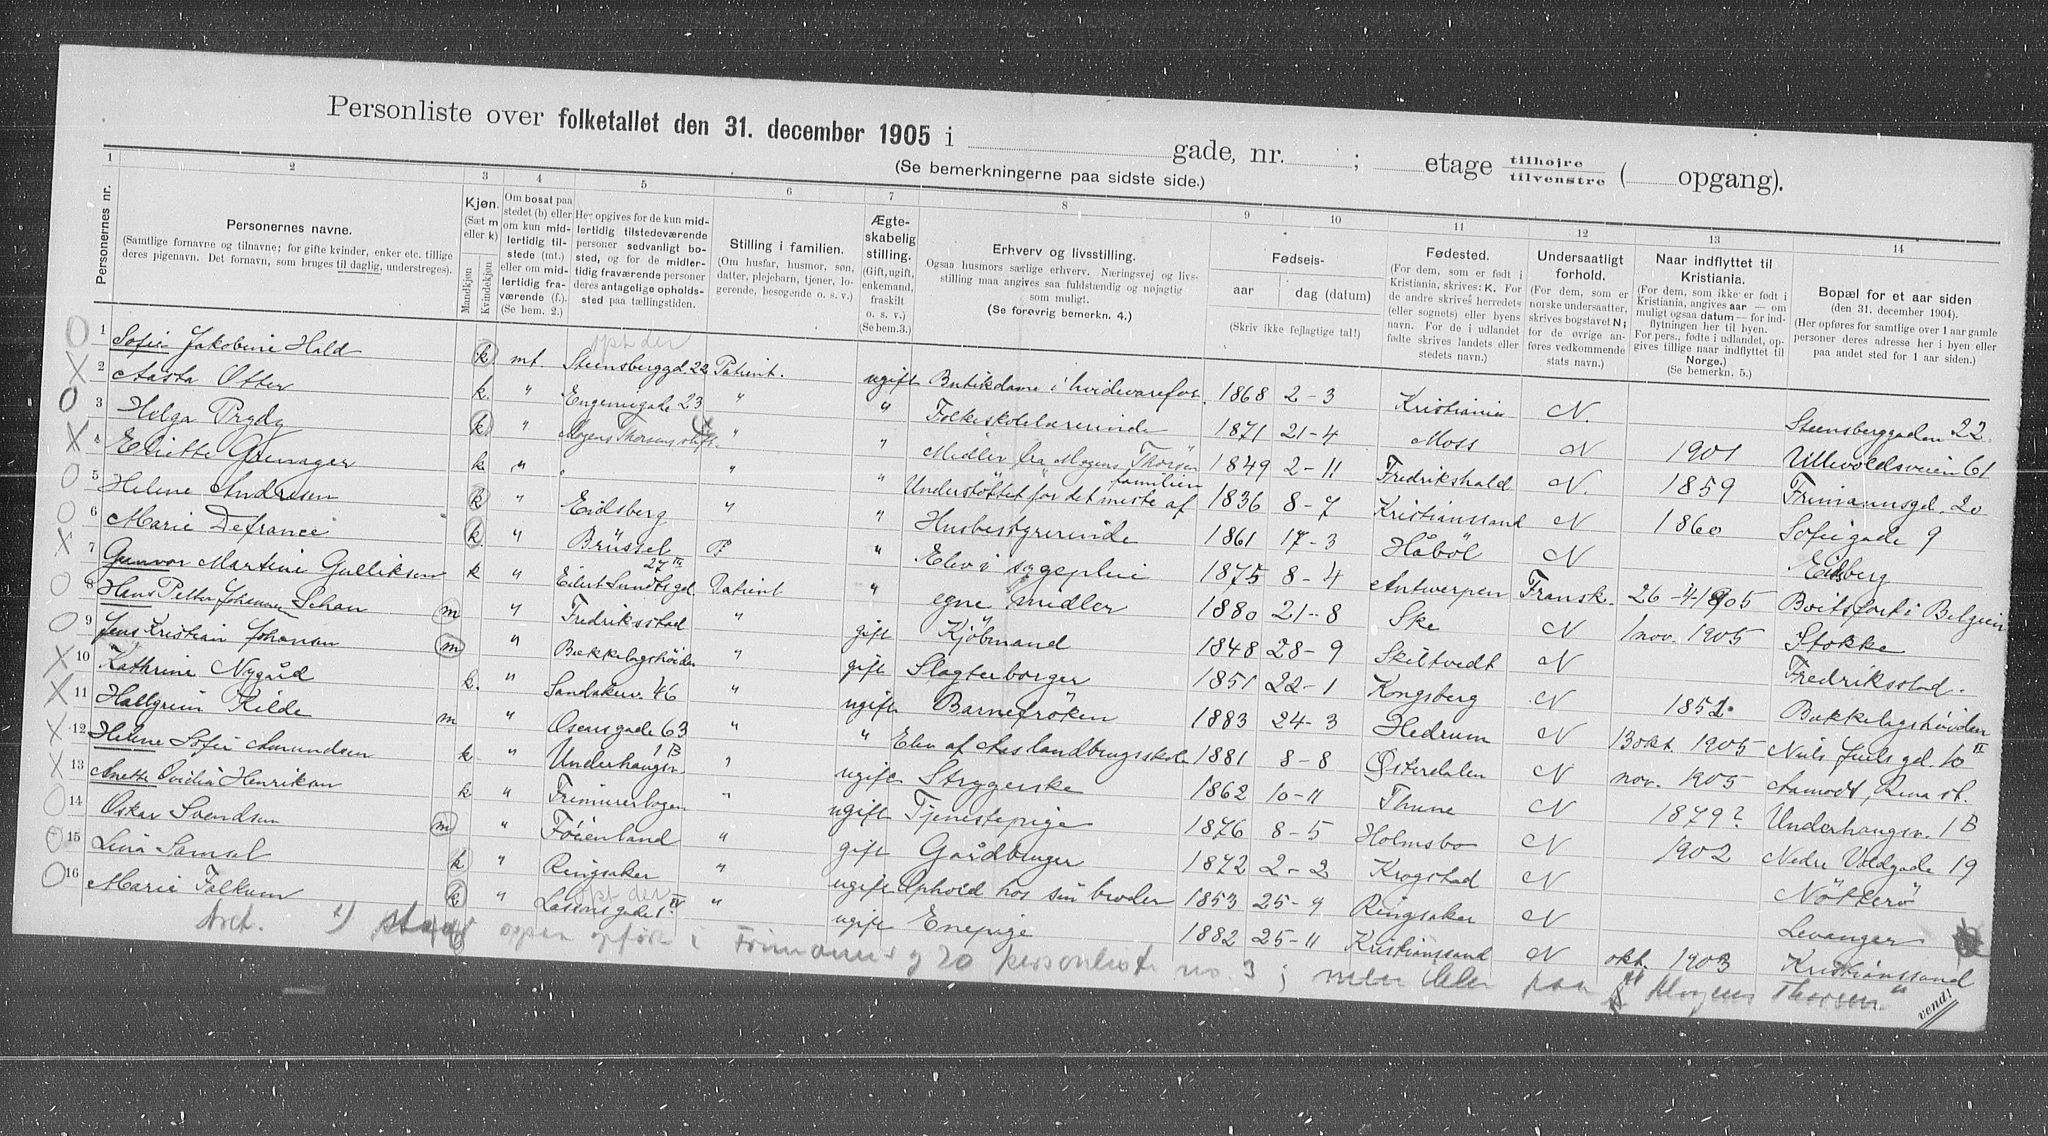 Personliste over folketallet den 31. december 1905 i gade, nr. ; etage tilhøjre / tilvenstre ( opgang).
(Se bemerkningerne paa sidste side.)
1 2 3 4 5 6 7 8 9 10 11 12 13 14
Personernes nr.
Personernes navne.
(Samtlige fornavne og tilnavne; for gifte kvinder, enker etc. tillige deres pigenavn. Det fornavn, som bruges til daglig, understreges).
Kjøn.
(Sæt m eller k)
Mandkjøn
Kvindekjøn
Om bosat paa stedet (b) eller om kun midlertidig tilstede (mt.) eller om midlertidig fraværende (f.). (Se bem. 2.)
Her opgives for de kun midlertidig tilstedeværende personer sedvanligt bosted, og for de midlertidig fraværende personer deres antagelige opholdssted paa tællingstiden.
Stilling i familien.
(Om husfar, husmor, søn, datter, plejebarn, tjener, logerende, besøgende o. s. v.)
Ægteskabelig stilling.
(Gift, ugift, enkemand, fraskilt o. s. v.) (Se bem. 3.)
Erhverv og livsstilling.
Ogsaa husmors særlige erhverv. Næringsvej og livsstilling maa angives saa fuldstændig og nøjagtig som muligt.
(Se forøvrig bemerkn. 4.)
Fødsels-
aar dag (datum)
(Skriv ikke fejlagtige tal!)
Fødested.
(For dem, som er født i Kristiania, skrives: K. For de andre skrives herredets (eller sognets) eller byens navn. For de i udlandet fødte skrives landets eller stedets navn.)
Undersaatligt forhold.
(For dem, som er norske undersaatter, skrives bogstavet N; for de øvrige anføres vedkommende stats navn.)
Naar indflyttet til Kristiania.
(For dem, som ikke er født i Kristiania, angives aar — om muligt ogsaa datum — for indflytningen her til byen. For pers., fødte i udlandet, opgives tillige naar indflyttet til Norge.)
(Se bemerkn. 5.)
Bopæl for et aar siden
(den 31. december 1904).
(Her opføres for samtlige over 1 aar gamle personer deres adresse her i byen eller paa andet sted for 1 aar siden.)
1 Sofie Jakobine Hald k mt. Steensberggd 22 Patient. ugift Butikdame i hvidevarefor. 1868 2-3 Kristiania N. Steensberggaden 22.
2 Aasta Otter k. " Engenigade 23 " " Folkeskolelærerinde 1871 21-4 Moss N 1901 Ullevoldsveien 61
3 Helga Prydz k. " Mogens Thorsens stift. " " Midler fra Mogens Thorsen 1849 2-11 Fredrikshald N. 1859 Frimannsgd. 20
4 Eliette Grenager k " " " Understöttet for det meste af familien 1836 8-7 Kristianssand N 1860 Sofiegade 9
5 Helene Andresen k " Eidsberg " " Husbestyrerinde 1861 17-3 Håböl N Eidsberg
6 Marie Defrance k. " Brüssel P. " Elev i sygepleie 1875 8-4 Antwerpen Fransk. 26-4 1905 Boitsfort i Belgien
7 Gunvor Martini Gulliksen k " Eilert Sundts gd. 27 III Patient " egne midler 1880 21-8 Ske N 1 nov. 1905 Stokke
8 Hans Petter Johannes Schau m " Fredriksstad " gift Kjöbmand 1848 28-9 Skiltvedt N Fredriksstad.
9 Jens Kristian Johansen m " Bækkelagshöiden " gift Slagterborger 1851 22-1 Kongsberg N 1852. Bækkelagshöiden
10 Kathrine Nygård k. " Sandakerv. 46 " ugift Barnefröken 1883 24-3 Hedrum N 13 okt. 1905 Niels Juels gd. 10 II
11 Hallgrim Kilde m " Oscarsgade 63 " " Elev af Aas landbrugsskole 1881 8-8 Østerdalen N nov. 1905 Aamodt, Rena st.
12 Helene Sofie Amundsen k. " Underhaugsv. 1 B " ugift Strygerske 1862 10-11 Thune N 1879? Underhaugsv. 1 B
13 Anette Ovidia Henriksen k " Frimurerlogen " ugift Tjenestepige 1876 8-5 Holmsbo N 1902 Nedre Voldgade 19
14 Oskar Svendsen m " Föienland " gift Gårdbruger 1872 2-2 Krogstad N Nötterö
15 Lina Samsal k " Ringsaker " ugift Ophold hos sin broder 1853 25-9 Ringsaker N Levanger
16 Marie Falkum k " Lassonsgade 1 IV " ugift Enepige 1882 25-11 Kristianssand N okt. 1903 Kristianssand
opfört i Frimannsg 20 personliste no. 3; men paa Mogens Thorsen"
vend!